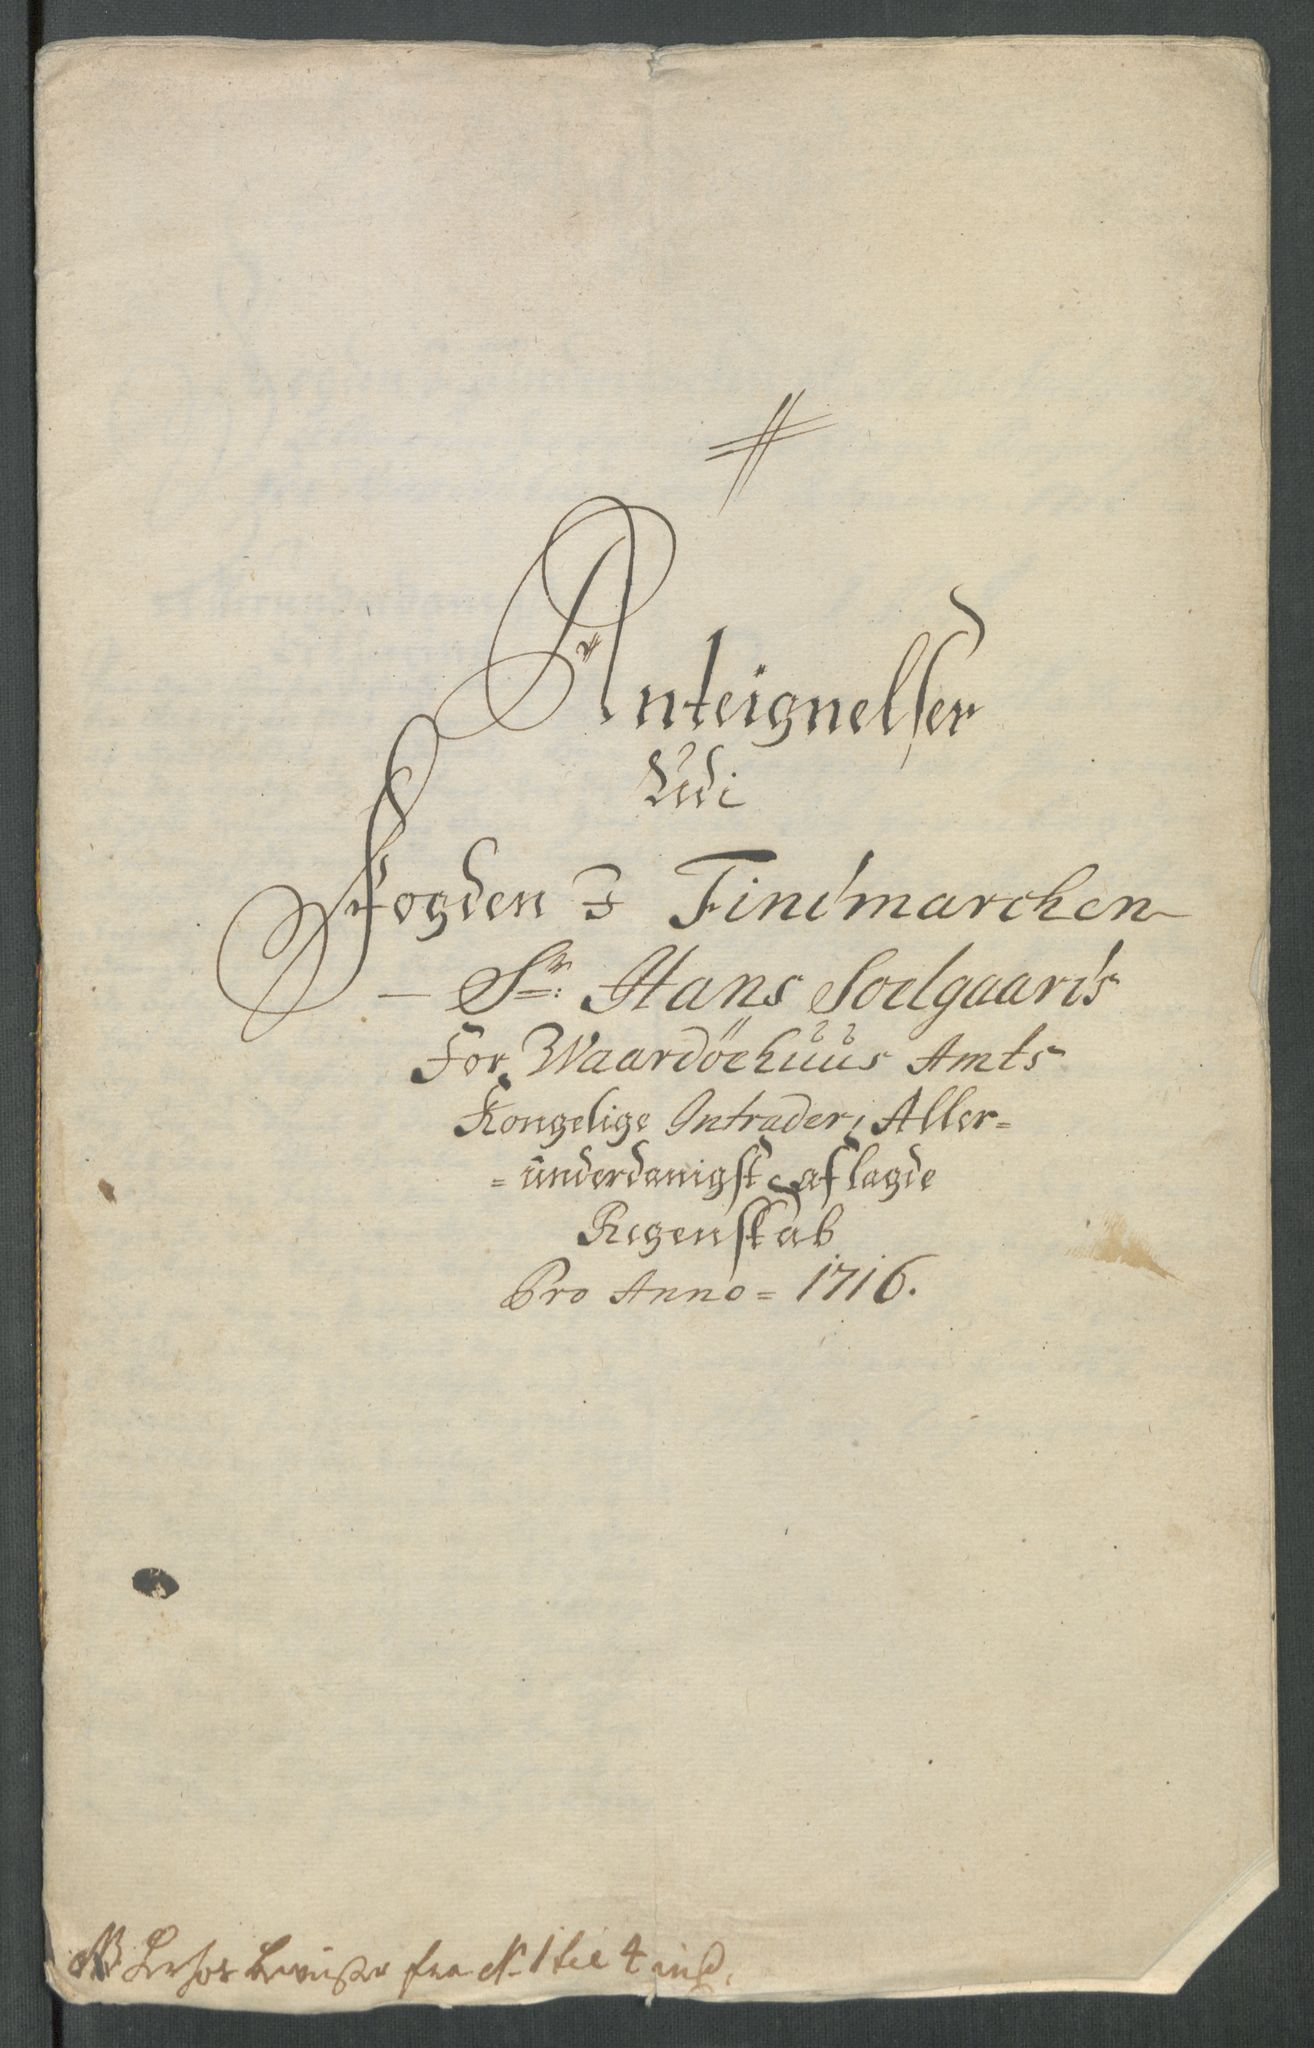 Anteignelser
Udi
Fogden I Findmarchen
Sr: Hans Soelgaards
For Waardöehuus Amts
Kongelige Intrader, Aller=
=underdanigst aflagde
Regenskab
Pro Anno = 1716.
NB Herhos beviser fra N. 1 til 4 incl.